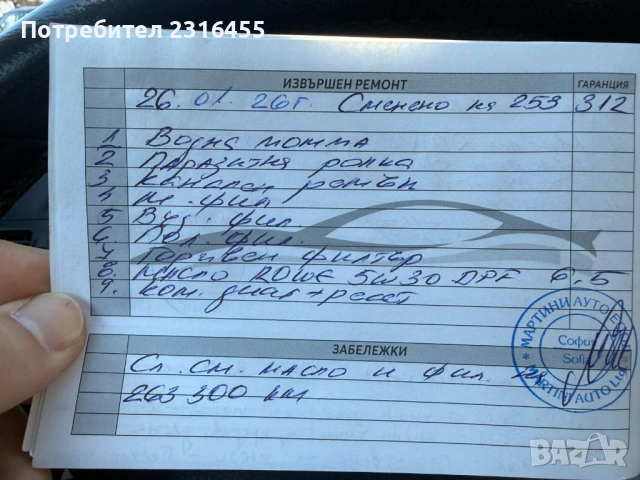 Потребител 2316455
ИЗВЪРШЕН РЕМОНТ
ГАРАНЦИЯ
26.01.26г. Сменено на 253 312
1 Водна помпа
2 Паразитна ролка
3 Канален ремък
4 М. фил.
5 Възд. фил.
6. Пол. фил.
7 Горивен филтър
8. Масло ROWE 5w30 DPF 6,5
9. Ком. диаг + ресет
* МАРТИНИ АУТО
София
Sofia
MARTINI AUTO Ltd
ЗАБЕЛЕЖКИ
Сл. см. масло и фил.
263 300 км
BAZAR